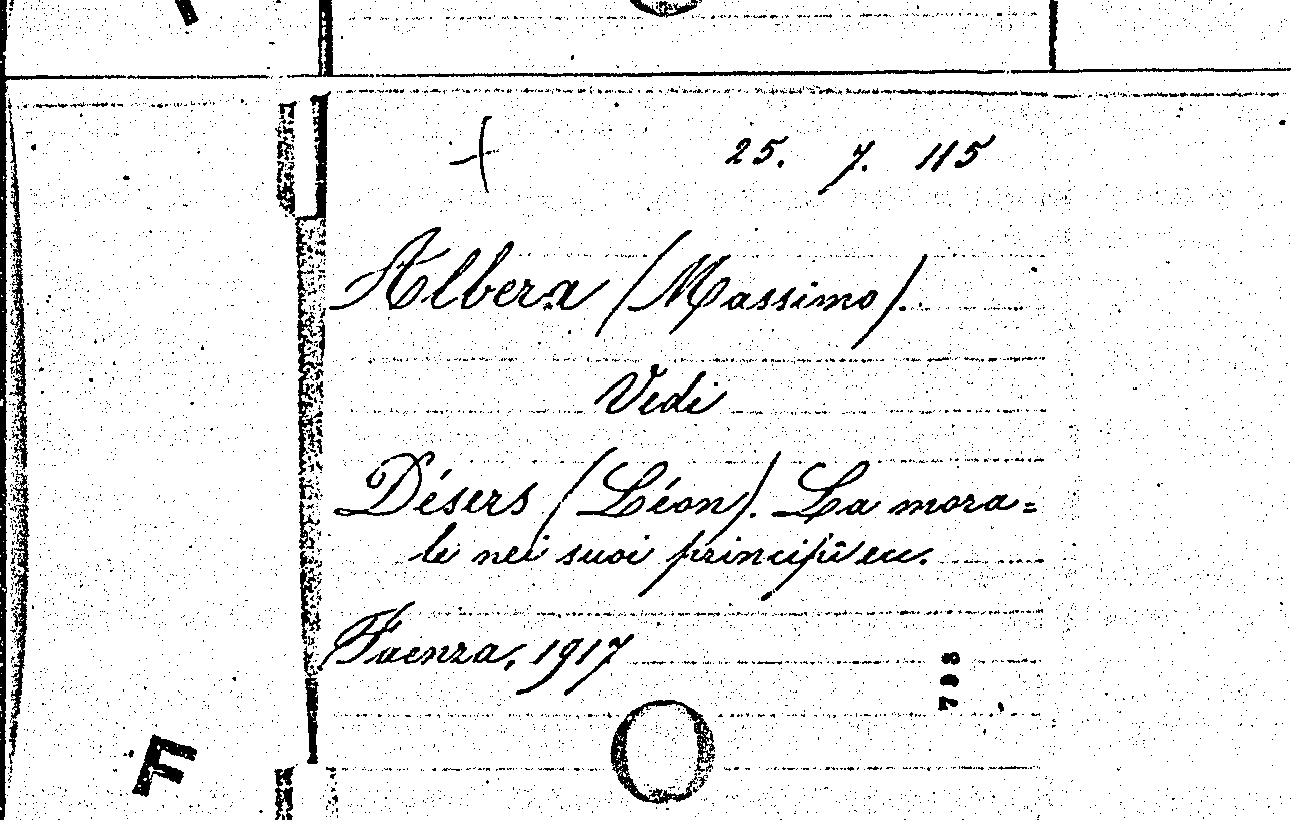 25. 7. 115
Albera (Massimo).
Vedi
Désers (Léon). La mora=
le nei suoi principii ecc.
Faenza, 1917
F